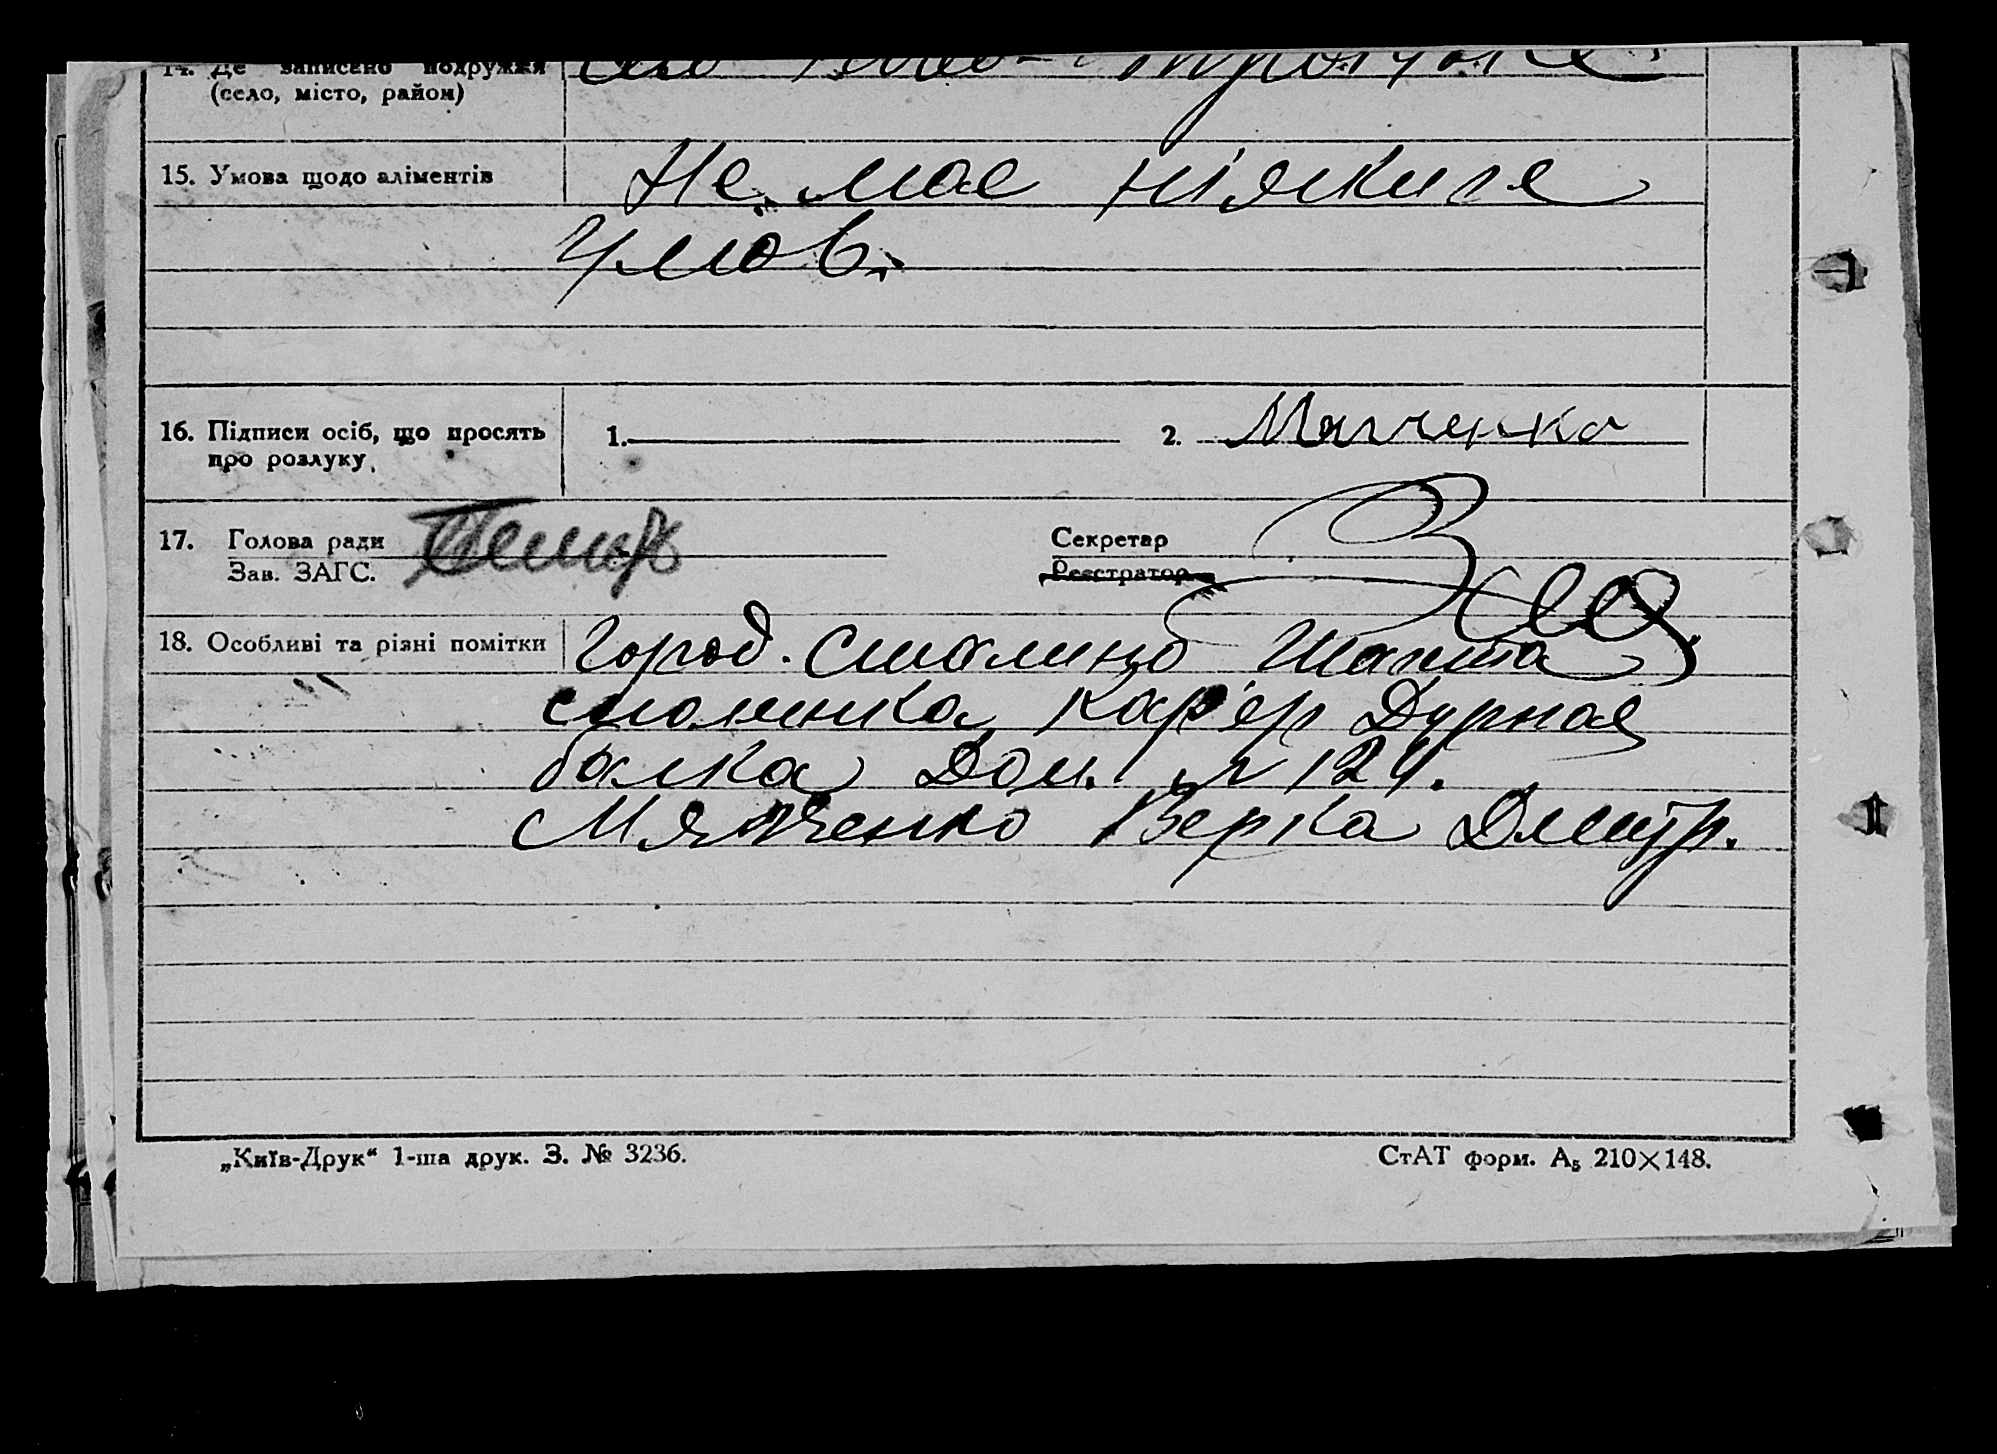 14. Де записено подружжя
(село, місто, район)
15. Умова щодо аліментів Не має ніяких
умов.
16. Підписи осіб, що просять 1. 2. Мягченко
про розлуку,
17. Голова ради Секретар
Зав. ЗАГС. Реєстратор
18. Особливі та різні помітки Город. Сталино Шахта
смолянка кар'єр Дурная
балка Дом. № 124.
Мягченко Верка Дмитр.
„Київ-Друк“ 1-ша друк. З. № 3236. СтАТ форм. А₅ 210×148.